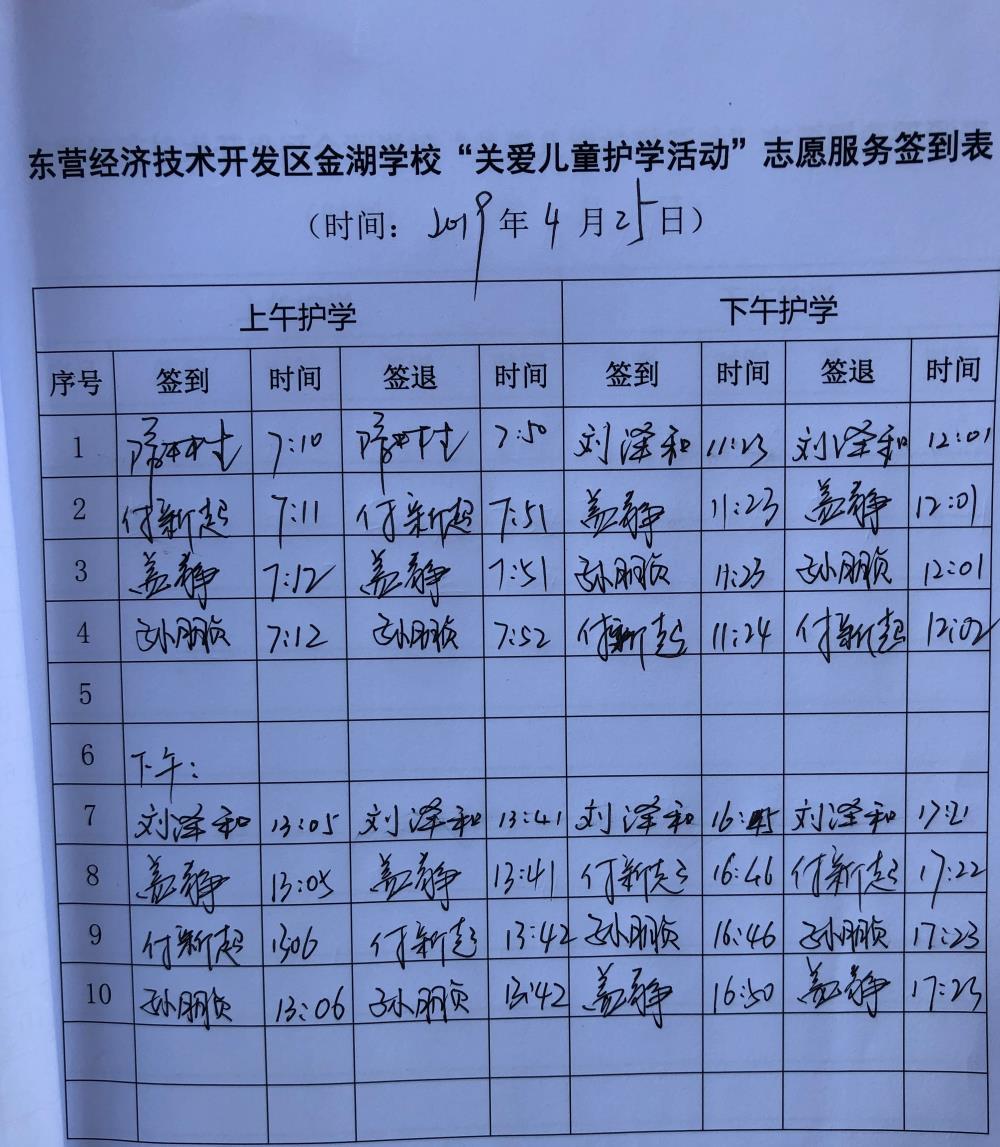 东营经济技术开发区金湖学校“关爱儿童护学活动”志愿服务签到表
（时间：2019年4月25日）
上午护学 下午护学
序号 签到 时间 签退 时间 签到 时间 签退 时间
1 7:10 7:50 刘泽和 11:23 刘泽和 12:01
2 付新起 7:11 付新起 7:51 盖静 11:23 盖静 12:01
3 盖静 7:12 盖静 7:51 孙朋贞 11:23 孙朋贞 12:01
4 孙朋贞 7:12 孙朋贞 7:52 付新起 11:24 付新起 12:02
5
6 下午：
7 刘泽和 13:05 刘泽和 13:41 刘泽和 16:45 刘泽和 17:21
8 盖静 13:05 盖静 13:41 付新起 16:46 付新起 17:22
9 付新起 1306 付新起 13:42 孙朋贞 16:46 孙朋贞 17:23
10 孙朋贞 13:06 孙朋贞 13:42 盖静 16:50 盖静 17:23